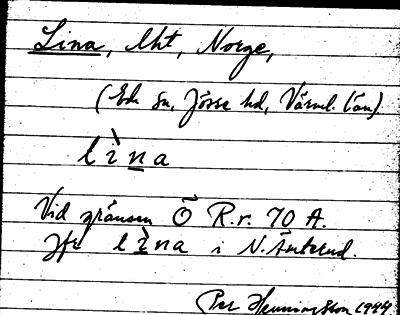 Lina, lht, Norge,
(Eda sn, Jösse hd, Värml. län).
lìna
Vid gränsen Ö R.r. 70 A.
Jfr lìna i N.
Per Henningsson 1994